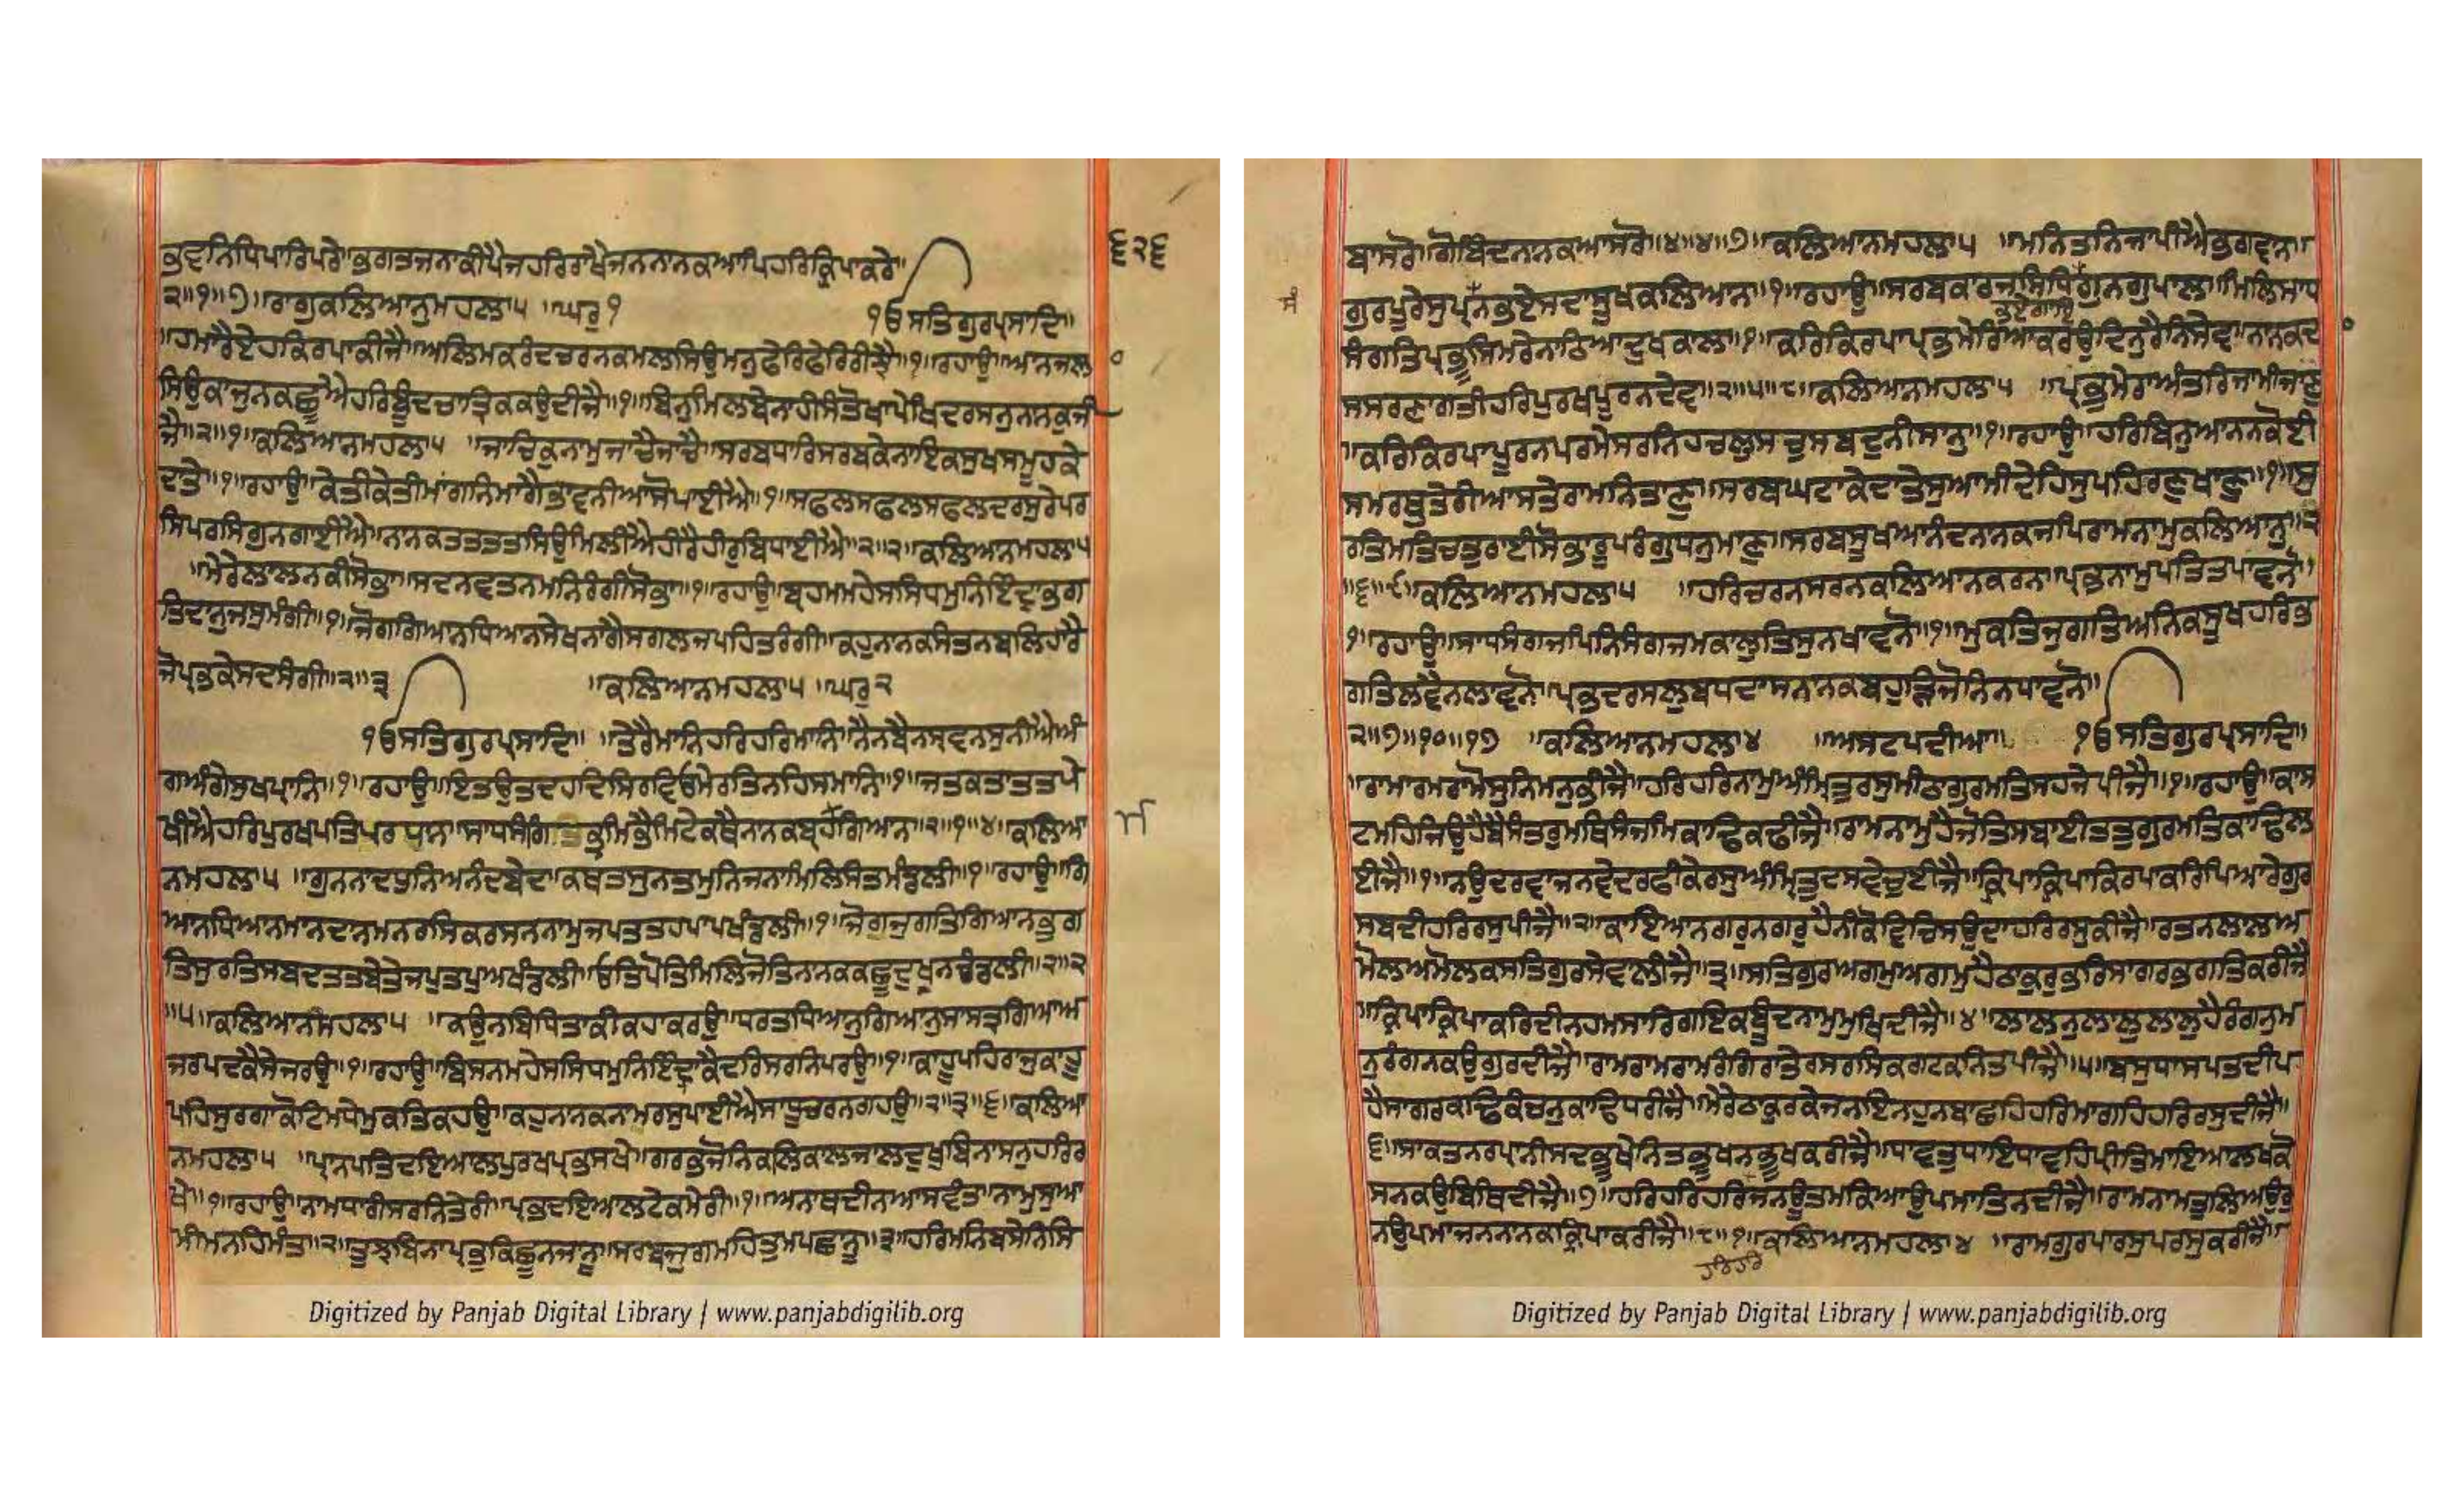 ਭਵਨਿਧਿਪਾਰਿਪਰੇ॥ਭਗਤਜਨਾਕੀਪੈਜਹਰਿਰਾਖੈਜਨਨਾਨਕਆਪਿਹਰਿਕ੍ਰਿਪਾਕਰੇ॥
੬੨੬
੨॥੧॥੭॥ਰਾਗੁਕਲਿਆਨੁਮਹਲਾ੫ ॥ਘਰੁ੧ ੴਸਤਿਗੁਰਪ੍ਰਸਾਦਿ॥
॥ਹਮਾਰੈਏਹਕਿਰਪਾਕੀਜੈ॥ਅਲਿਮਕਰੰਦਚਰਨਕਮਲਸਿਉਮਨੁਫੇਰਿਫੇਰਿਰੀਝੈ॥੧॥ਰਹਾਉ॥ਆਨਜਲ
ਸਿਉਕਾਜੁਨਕਛੂਐਹਰਿਬੂੰਦਚਾਤ੍ਰਿਕਕਉਦੀਜੈ॥੧॥ਬਿਨੁਮਿਲਬੇਨਾਹੀਸੰਤੋਖਾਪੇਖਿਦਰਸਨੁਨਾਨਕੁਜੀ
ਜੈ॥੨॥੧॥ਕਲਿਆਨਮਹਲਾ੫ ॥ਜਾਚਿਕੁਨਾਮੁਜਾਚੈਜਾਚੈ॥ਸਰਬਧਾਰਿਸਰਬਕੇਨਾਇਕਸੁਖਸਮੂਹਕੇ
ਦਾਤੇ॥੧॥ਰਹਾਉ॥ਕੇਤੀਕੇਤੀਮਾਂਗਨਿਮਾਗੈਭਾਵਨੀਆਸੋਪਾਈਐ॥੧॥ਸਫਲਸਫਲਸਫਲਦਰਸੁਰੇਪਰ
ਸਿਪਰਸਿਗੁਨਗਾਈਐ॥ਨਾਨਕਤਤਤਤਸਿਉਮਿਲੀਐਹੀਰੈਹੀਰੁਬਿਧਾਈਐ॥੨॥੨॥ਕਲਿਆਨਮਹਲਾ੫
॥ਮੇਰੇਲਾਲਨਕੀਸੋਭਾ॥ਸਦਨਵਤਨਮਨਿਰੰਗੀਸੋਭਾ॥੧॥ਰਹਾਉ॥ਬ੍ਰਹਮਮਹੇਸਸਿਧਮੁਨਿਇੰਦ੍ਰਾਭਗ
ਤਿਦਾਨੁਜਸੁਮੰਗੀ॥੧॥ਜੋਗਗਿਆਨਧਿਆਨਸੇਖਨਾਗੈਸਗਲਜਪਹਿਤਰੰਗੀ॥ਕਹੁਨਾਨਕਸੰਤਨਬਲਿਹਾਰੈ
ਜੋਪ੍ਰਭਕੇਸਦਸੰਗੀ॥੨॥੩ ॥ਕਲਿਆਨਮਹਲਾ੫ ॥ਘਰੁ੨
ੴਸਤਿਗੁਰਪ੍ਰਸਾਦਿ॥ ॥ਤੇਰੈਮਾਨਿਹਰਿਹਰਿਮਾਨਿ॥ਨੈਨਬੈਨਸ੍ਰਵਨਸੁਨੀਐਅੰ
ਗਅੰਗੇਸੁਖਪ੍ਰਾਨਿ॥੧॥ਰਹਾਉ॥ਇਤਉਤਦਹਦਿਸਿਰਵਿਓਮੇਰਤਿਨਹਿਸਮਾਨਿ॥੧॥ਜਤਕਤਾਤਤਪੇ
ਖੀਐਹਰਿਪੁਰਖਪਤਿਪਰਧਾਨ॥ਸਾਧਸੰਗਿਭ੍ਰਮਭੈਮਿਟੇਕਥੈਨਾਨਕਬ੍ਰਹਗਿਆਨ॥੨॥੧॥੪॥ਕਲਿਆ
ਮ
ਨਮਹਲਾ੫ ॥ਗੁਨਨਾਦਧੁਨਿਅਨੰਦਬੇਦ॥ਕਥਤਸੁਨਤਮੁਨਿਜਨਾਮਿਲਿਸੰਤਮੰਡਲੀ॥੧॥ਰਹਾਉ॥ਗਿ
ਆਨਧਿਆਨਮਾਨਦਾਨਮਨਰਸਿਕਰਸਨਨਾਮੁਜਪਤਤਹਪਾਪਖੰਡਲੀ॥੧॥ਜੋਗਜੁਗਤਿਗਿਆਨਭੁਗ
ਤਿਸੁਰਤਿਸਬਦਤਤਬੇਤੇਜਪੁਤਪੁਅਖੰਡਲੀ॥ਓਤਿਪੋਤਿਮਿਲਿਜੋਤਿਨਾਨਕਕਛੂਦੁਖੁਨਡੰਡਲੀ॥੨॥੨
॥੫॥ਕਲਿਆਨਮਹਲਾ੫ ॥ਕਉਨਬਿਧਿਤਾਕੀਕਹਾਕਰਉ॥ਧਰਤਧਿਆਨੁਗਿਆਨੁਸਾਸਤ੍ਰਗਿਆਅ
ਜਰਪਦਕੈਸੇਜਰਉ॥੧॥ਰਹਾਉ॥ਬਿਸਨਮਹੇਸਸਿਧਮੁਨਿਇੰਦ੍ਰਾਕੈਦਰਿਸਰਨਿਪਰਉ॥੧॥ਕਾਹੂਪਹਿਰਾਜੁਕਾਹੂ
ਪਹਿਸੁਰਗਾਕੋਟਿਮਧੇਮੁਕਤਿਕਹਉ॥ਕਹੁਨਾਨਕਨਾਮਰਸੁਪਾਈਐਸਾਧੂਚਰਨਗਹਉ॥੨॥੩॥੬॥ਕਲਿਆ
ਨਮਹਲਾ੫ ॥ਪ੍ਰਾਨਪਤਿਦਇਆਲਪੁਰਖਪ੍ਰਭਸਖੇ॥ਗਰਭਜੋਨਿਕਲਿਕਾਲਜਾਲਦੁਖਬਿਨਾਸਨੁਹਰਿਰ
ਖੇ॥੧॥ਰਹਾਉ॥ਨਾਮਧਾਰੀਸਰਨਿਤੇਰੀ॥ਪ੍ਰਭਦਇਆਲਟੇਕਮੇਰੀ॥੧॥ਅਨਾਥਦੀਨਆਸਵੰਤ॥ਨਾਮੁਸੁਆ
ਮੀਮਨਹਿਮੰਤ॥੨॥ਤੁਝਬਿਨਾਪ੍ਰਭਕਿਛੂਨਜਾਨੂ॥ਸਰਬਜੁਗਮਹਿਤੁਮਪਛਾਨੂ॥੩॥ਹਰਿਮਨਿਬਸੇਨਿਸਿ
Digitized by Panjab Digital Library | www.panjabdigilib.org
ਬਾਸਰੋ॥ਗੋਬਿੰਦਨਾਨਕਆਸਰੋ॥੪॥੪॥੭॥ਕਲਿਆਨਮਹਲਾ੫ ॥ਮਨਿਤਨਿਜਾਪੀਐਭਗਵਾਨ॥
ਗੁਰਪੂਰੇਸੁਪ੍ਰਸੰਨਭਏਸਦਾਸੂਖਕਲਿਆਨ॥੧॥ਰਹਾਉ॥ਸਰਬਕਾਰਜਸਿਧਿਗੁਨਗੁਪਾਲਾ॥ਮਿਲਿਸਾਧ
ਸੰ
ਸੰਗਤਿਪ੍ਰਭੂਸਿਮਰੇਨਾਠਿਆਦੁਖਕਾਲਾ॥੧॥ਕਰਿਕਿਰਪਾਪ੍ਰਭਮੇਰਿਆਕਰਉਦਿਨੁਰੈਨਿਸੇਵਾ॥ਨਾਨਕਦਾ
ਸਸਰਣਾਗਤੀਹਰਿਪੁਰਖਪੂਰਨਦੇਵਾ॥੨॥੫॥੮॥ਕਲਿਆਨਮਹਲਾ੫ ॥ਪ੍ਰਭੁਮੇਰਾਅੰਤਰਿਜਾਮੀਜਾਣੁ
॥ਕਰਿਕਿਰਪਾਪੂਰਨਪਰਮੇਸਰਨਿਹਚਲੁਸਚੁਸਬਦੁਨੀਸਾਨੁ॥੧॥ਰਹਾਉ॥ਹਰਿਬਿਨੁਆਨਨਕੋਈ
ਸਮਰਥੁਤੇਰੀਆਸਤੇਰਾਮਨਿਤਾਣੁ॥ਸਰਬਘਟਾਕੇਦਾਤੇਸੁਆਮੀਦੇਹਿਸੁਪਹਿਰਣੁਖਾਣੁ॥੧॥ਸੁ
ਰਤਿਮਤਿਚਤੁਰਾਈਸੋਭਾਰੂਪਰੰਗੁਧਨੁਮਾਣੁ॥ਸਰਬਸੂਖਆਨੰਦਨਾਨਕਜਪਿਰਾਮਨਾਮੁਕਲਿਆਨੁ॥੨
॥੬॥੯॥ਕਲਿਆਨਮਹਲਾ੫ ॥ਹਰਿਚਰਨਸਰਨਕਲਿਆਨਕਰਨ॥ਪ੍ਰਭਨਾਮੁਪਤਿਤਪਾਵਨੋ॥
੧॥ਰਹਾਉ॥ਸਾਧਸੰਗਿਜਪਿਨਿਸੰਗਜਮਕਾਲੁਤਿਸੁਨਖਾਵਨੋ॥੧॥ਮੁਕਤਿਜੁਗਤਿਅਨਿਕਸੂਖਹਰਿਭ
ਗਤਿਲਵੈਨਲਾਵਨੋ॥ਪ੍ਰਭਦਰਸਲੁਬਧਦਾਸਨਾਨਕਬਹੁੜਿਜੋਨਿਨਧਾਵਨੋ॥
੨॥੭॥੧੦॥੧੭ ॥ਕਲਿਆਨਮਹਲਾ੪ ॥ਅਸਟਪਦੀਆ॥ ੴਸਤਿਗੁਰਪ੍ਰਸਾਦਿ॥
॥ਰਾਮਾਰਮਰਾਮੋਸੁਨਿਮਨੁਭੀਜੈ॥ਹਰਿਹਰਿਨਾਮੁਅੰਮ੍ਰਿਤੁਰਸੁਮੀਠਾਗੁਰਮਤਿਸਹਜੇਪੀਜੈ॥੧॥ਰਹਾਉ॥ਕਾਸ
ਟਮਹਿਜਿਉਹੈਬੈਸੰਤਰੁਮਥਿਸੰਜਮਿਕਾਢਿਕਢੀਜੈ॥ਰਾਮਨਾਮੁਹੈਜੋਤਿਸਬਾਈਤਤੁਗੁਰਮਤਿਕਾਢਿਲ
ਈਜੈ॥੧॥ਨਉਦਰਵਾਜਨਵੇਦਰਫੀਕੇਰਸੁਅੰਮ੍ਰਿਤੁਦਸਵੇਚੁਈਜੈ॥ਕ੍ਰਿਪਾਕ੍ਰਿਪਾਕਿਰਪਾਕਰਿਪਿਆਰੇਗੁਰ
ਸਬਦੀਹਰਿਰਸੁਪੀਜੈ॥੨॥ਕਾਇਆਨਗਰੁਨਗਰੁਹੈਨੀਕੋਵਿਚਿਸਉਦਾਹਰਿਰਸੁਕੀਜੈ॥ਰਤਨਲਾਲਅ
ਮੋਲਅਮੋਲਕਸਤਿਗੁਰਸੇਵਾਲੀਜੈ॥੩॥ਸਤਿਗੁਰਅਗਮੁਅਗਮੁਹੈਠਾਕੁਰੁਭਰਿਸਾਗਰਭਗਤਿਕਰੀਜੈ
॥ਕ੍ਰਿਪਾਕ੍ਰਿਪਾਕਰਿਦੀਨਹਮਸਾਰਿੰਗਇਕਬੂੰਦਨਾਮੁਮੁਖਿਦੀਜੈ॥੪॥ਲਾਲਨੁਲਾਲੁਲਾਲੁਹੈਰੰਗਨੁਮ
ਨੁਰੰਗਨਕਉਗੁਰਦੀਜੈ॥ਰਾਮਰਾਮਰਾਮਰੰਗਿਰਾਤੇਰਸਰਸਿਕਗਟਕਨਿਤਪੀਜੈ॥੫॥ਬਸੁਧਾਸਪਤਦੀਪ
ਹੈਸਾਗਰਕਢਿਕੰਚਨੁਕਾਢਿਧਰੀਜੈ॥ਮੇਰੇਠਾਕੁਰਕੇਜਨਇਨਹੁਨਬਾਛਹਿਹਰਿਮਾਗਹਿਹਰਿਰਸੁਦੀਜੈ॥
੬॥ਸਾਕਤਨਰਪ੍ਰਾਨੀਸਦਭੂਖੇਨਿਤਭੂਖਨਭੂਖਕਰੀਜੈ॥ਧਾਵਤੁਧਾਇਧਾਵਹਿਪ੍ਰੀਤਿਮਾਇਆਲਖਕੋ
ਸਨਕਉਬਿਥਿਦੀਜੈ॥੭॥ਹਰਿਹਰਿਹਰਿਜਨਊਤਮਕਿਆਉਪਮਾਤਿਨਦੀਜੈ॥ਰਾਮਨਾਮਤੁਲਿਅਉਰੁ
ਨਉਪਮਾਜਨਨਾਨਕਕ੍ਰਿਪਾਕਰੀਜੈ॥੮॥੧॥ਕਲਿਆਨਮਹਲਾ੪ ॥ਰਾਮਗੁਰਪਾਰਸੁਪਰਸੁਕਰੀਜੈ॥
ਹਰਿਹਰਿ
Digitized by Panjab Digital Library | www.panjabdigilib.org